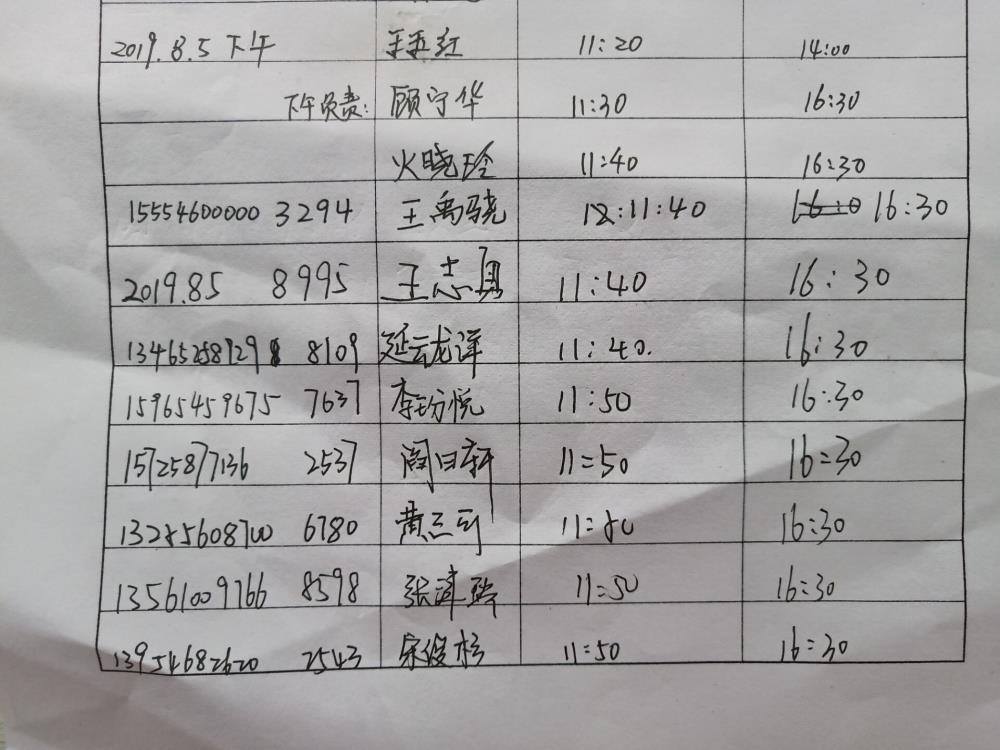 2019.8.5 下午 王玉红 11:20 14:00
下午负责: 顾守华 11:30 16:30
火晓玲 11:40 16:30
15554600000 3294 王禹骁 11:40 16:30
2019.85 8995 王志 11:40 16:30
13465258929 8109 延云龙洋 11:40. 16:30
15965459675 7637 李玢悦 11:50 16:30
15725877136 2537 阎白轩 11=50 16=30
13285608700 6780 黄三 11=50 16:30
13561009766 8598 张 11=50 16:30
13954682620 2543 宋俊杉 11:50 16:30